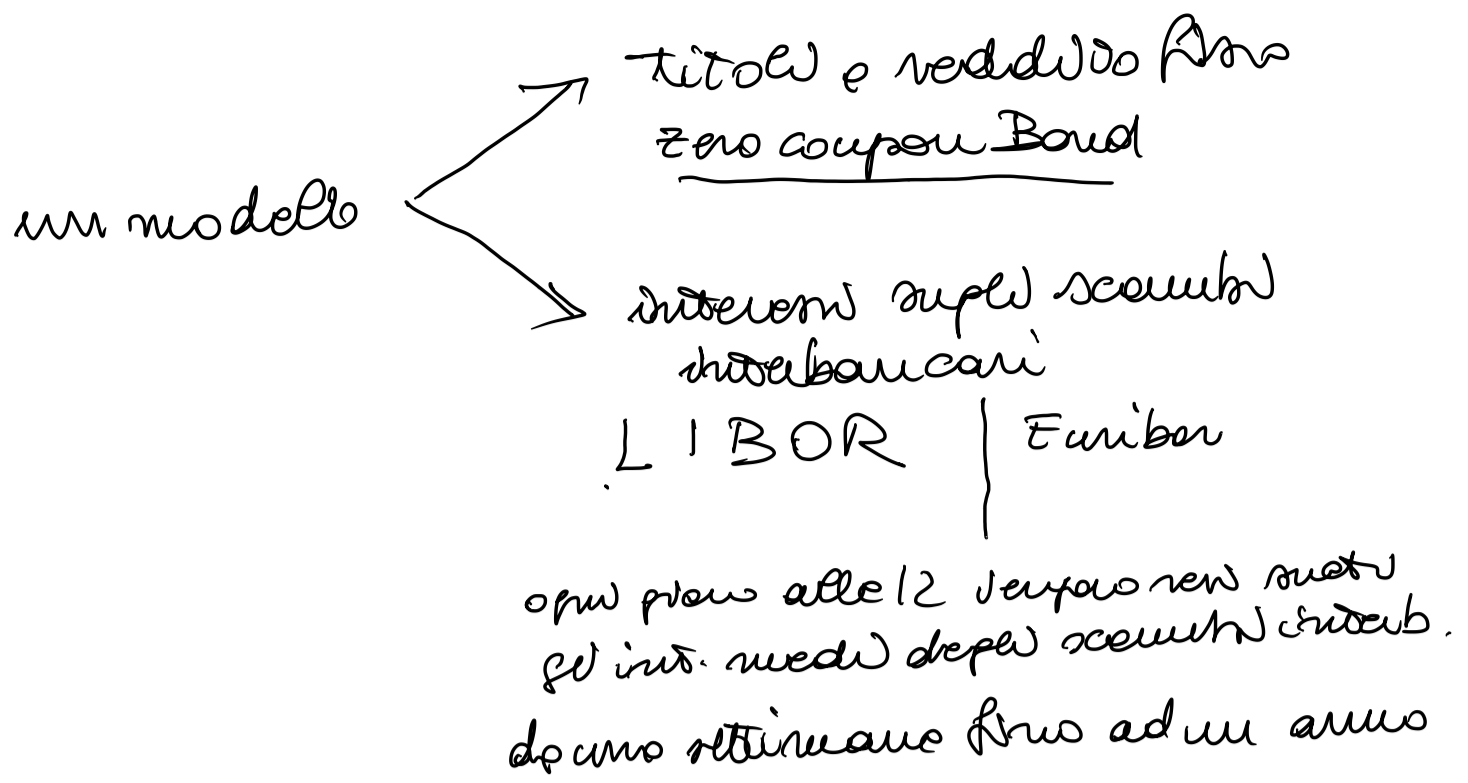 titoli a reddito fisso
zero coupon Bond
un modello
interessi sugli scambi
interbancari
LIBOR | Euribor
ogni giorno alle 12 vengono resi noti
gli int. medi degli scambi interb.
da una settimana fino ad un anno